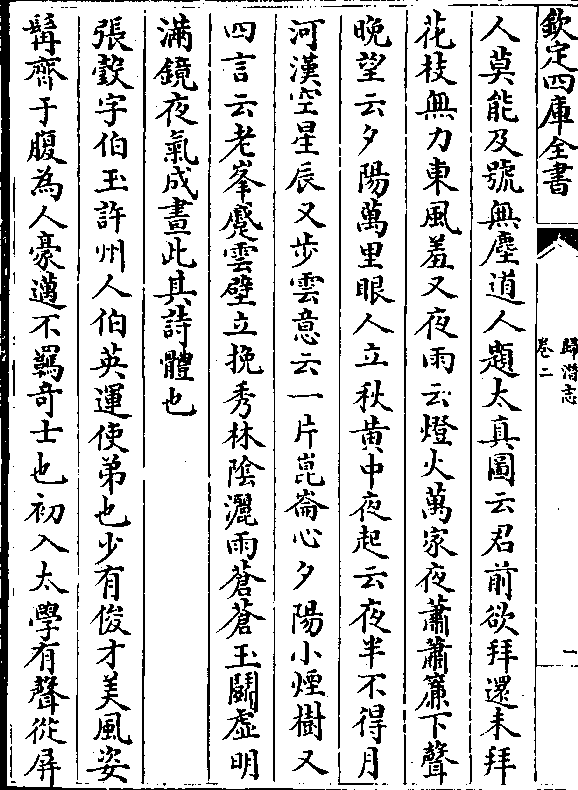 欽定四庫全書
歸潛志
卷二
一
人莫能及號無塵道人題太真圖云君前欲拜還未拜
花枝無力東風羞又夜雨云燈火萬家夜蕭蕭簾下聲
晚望云夕陽萬里眼人立秋黄中夜起云夜半不得月
河漢空星辰又步雲意云一片崑崙心夕陽小煙樹又
四言云老峯蹙雲壁立挽秀林陰灑雨蒼蒼玉鬭虚明
滿鏡夜氣成晝此其詩體也
張瑴字伯玉許州人伯英運使弟也少有俊才美風姿
髯齊于腹為人豪邁不羈奇士也初入太學有聲從屏